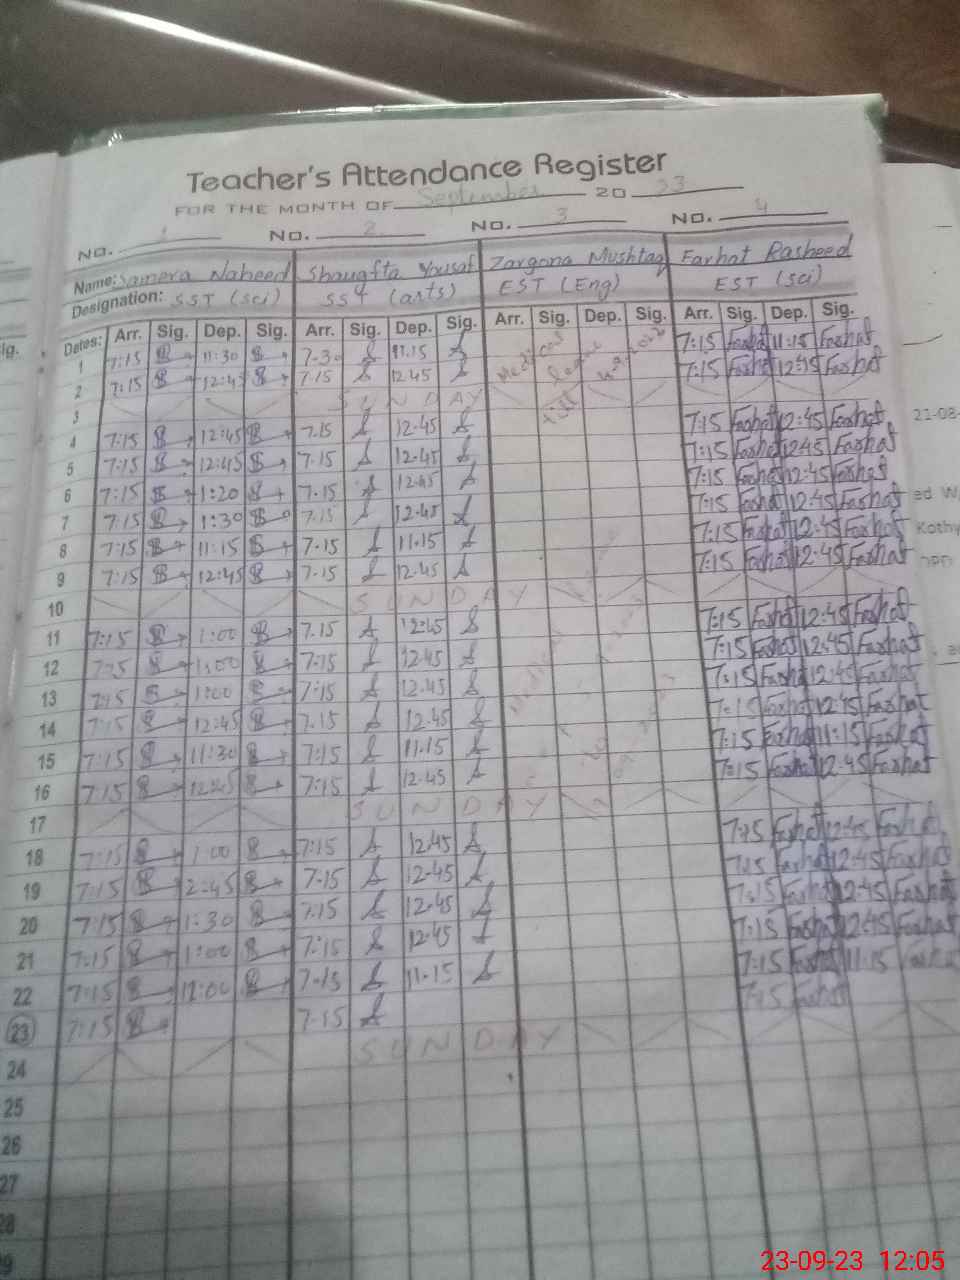 Teacher's Attendance Register
FOR THE MONTH OF September 20 23
NO. 1 NO. 2 NO. 3 NO. 4
Name: Samera Naheed Shaugfta Yousaf Zargona Mushtaq Farhat Rasheed
Designation: SST (sci) SST (arts) EST (Eng) EST (sci)
Dates: Arr. Sig. Dep. Sig. Arr. Sig. Dep. Sig. Arr. Sig. Dep. Sig. Arr. Sig. Dep. Sig.
1 7:15 11:30 7-30 11.15 Medical 7:15 Farhat 11:15 Farhat
2 7:15 12:45 7.15 12.45 leave till 7:15 Farhat 12:15 Farhat
3 SUNDAY
4 7:15 12:45 7.15 12.45 7:15 Farhat 12:45 Farhat
5 7:15 12:45 7.15 12.45 7:15 Farhat 12:45 Farhat
6 7:15 1:20 7.15 12.45 7:15 Farhat 12:45 Farhat
7 7:15 1:30 7.15 12.45 7:15 Farhat 12:45 Farhat
8 7:15 11:15 7.15 11.15 7:15 Farhat 12:45 Farhat
9 7:15 12:45 7.15 12.45 7:15 Farhat 12:45 Farhat
10 SUNDAY
11 7:15 1:00 7.15 12:45 7:15 Farhat 12:45 Farhat
12 7:15 1:00 7:15 12.45 7:15 Farhat 12:45 Farhat
13 7:15 1:00 7:15 12.45 7:15 Farhat 12:45 Farhat
14 7:15 12:45 7.15 12.45 7:15 Farhat 12:45 Farhat
15 7:15 11:30 7:15 11.15 7:15 Farhat 11:15 Farhat
16 7:15 12:45 7:15 12.45 7:15 Farhat 12:45 Farhat
17 SUNDAY
18 7:15 1:00 7:15 12.45 7:15 Farhat 12:45 Farhat
19 7:15 2:45 7.15 12.45 7:15 Farhat 12:45 Farhat
20 7:15 1:30 7:15 12.45 7:15 Farhat 12:45 Farhat
21 7:15 1:00 7:15 12.45 7:15 Farhat 12:45 Farhat
22 7:15 12:00 7.15 11.15 7:15 Farhat 11:15 Farhat
23 7:15 7.15 7:15 Farhat
24 SUNDAY
25
26
27
28
29
21-08-
23-09-23 12:05